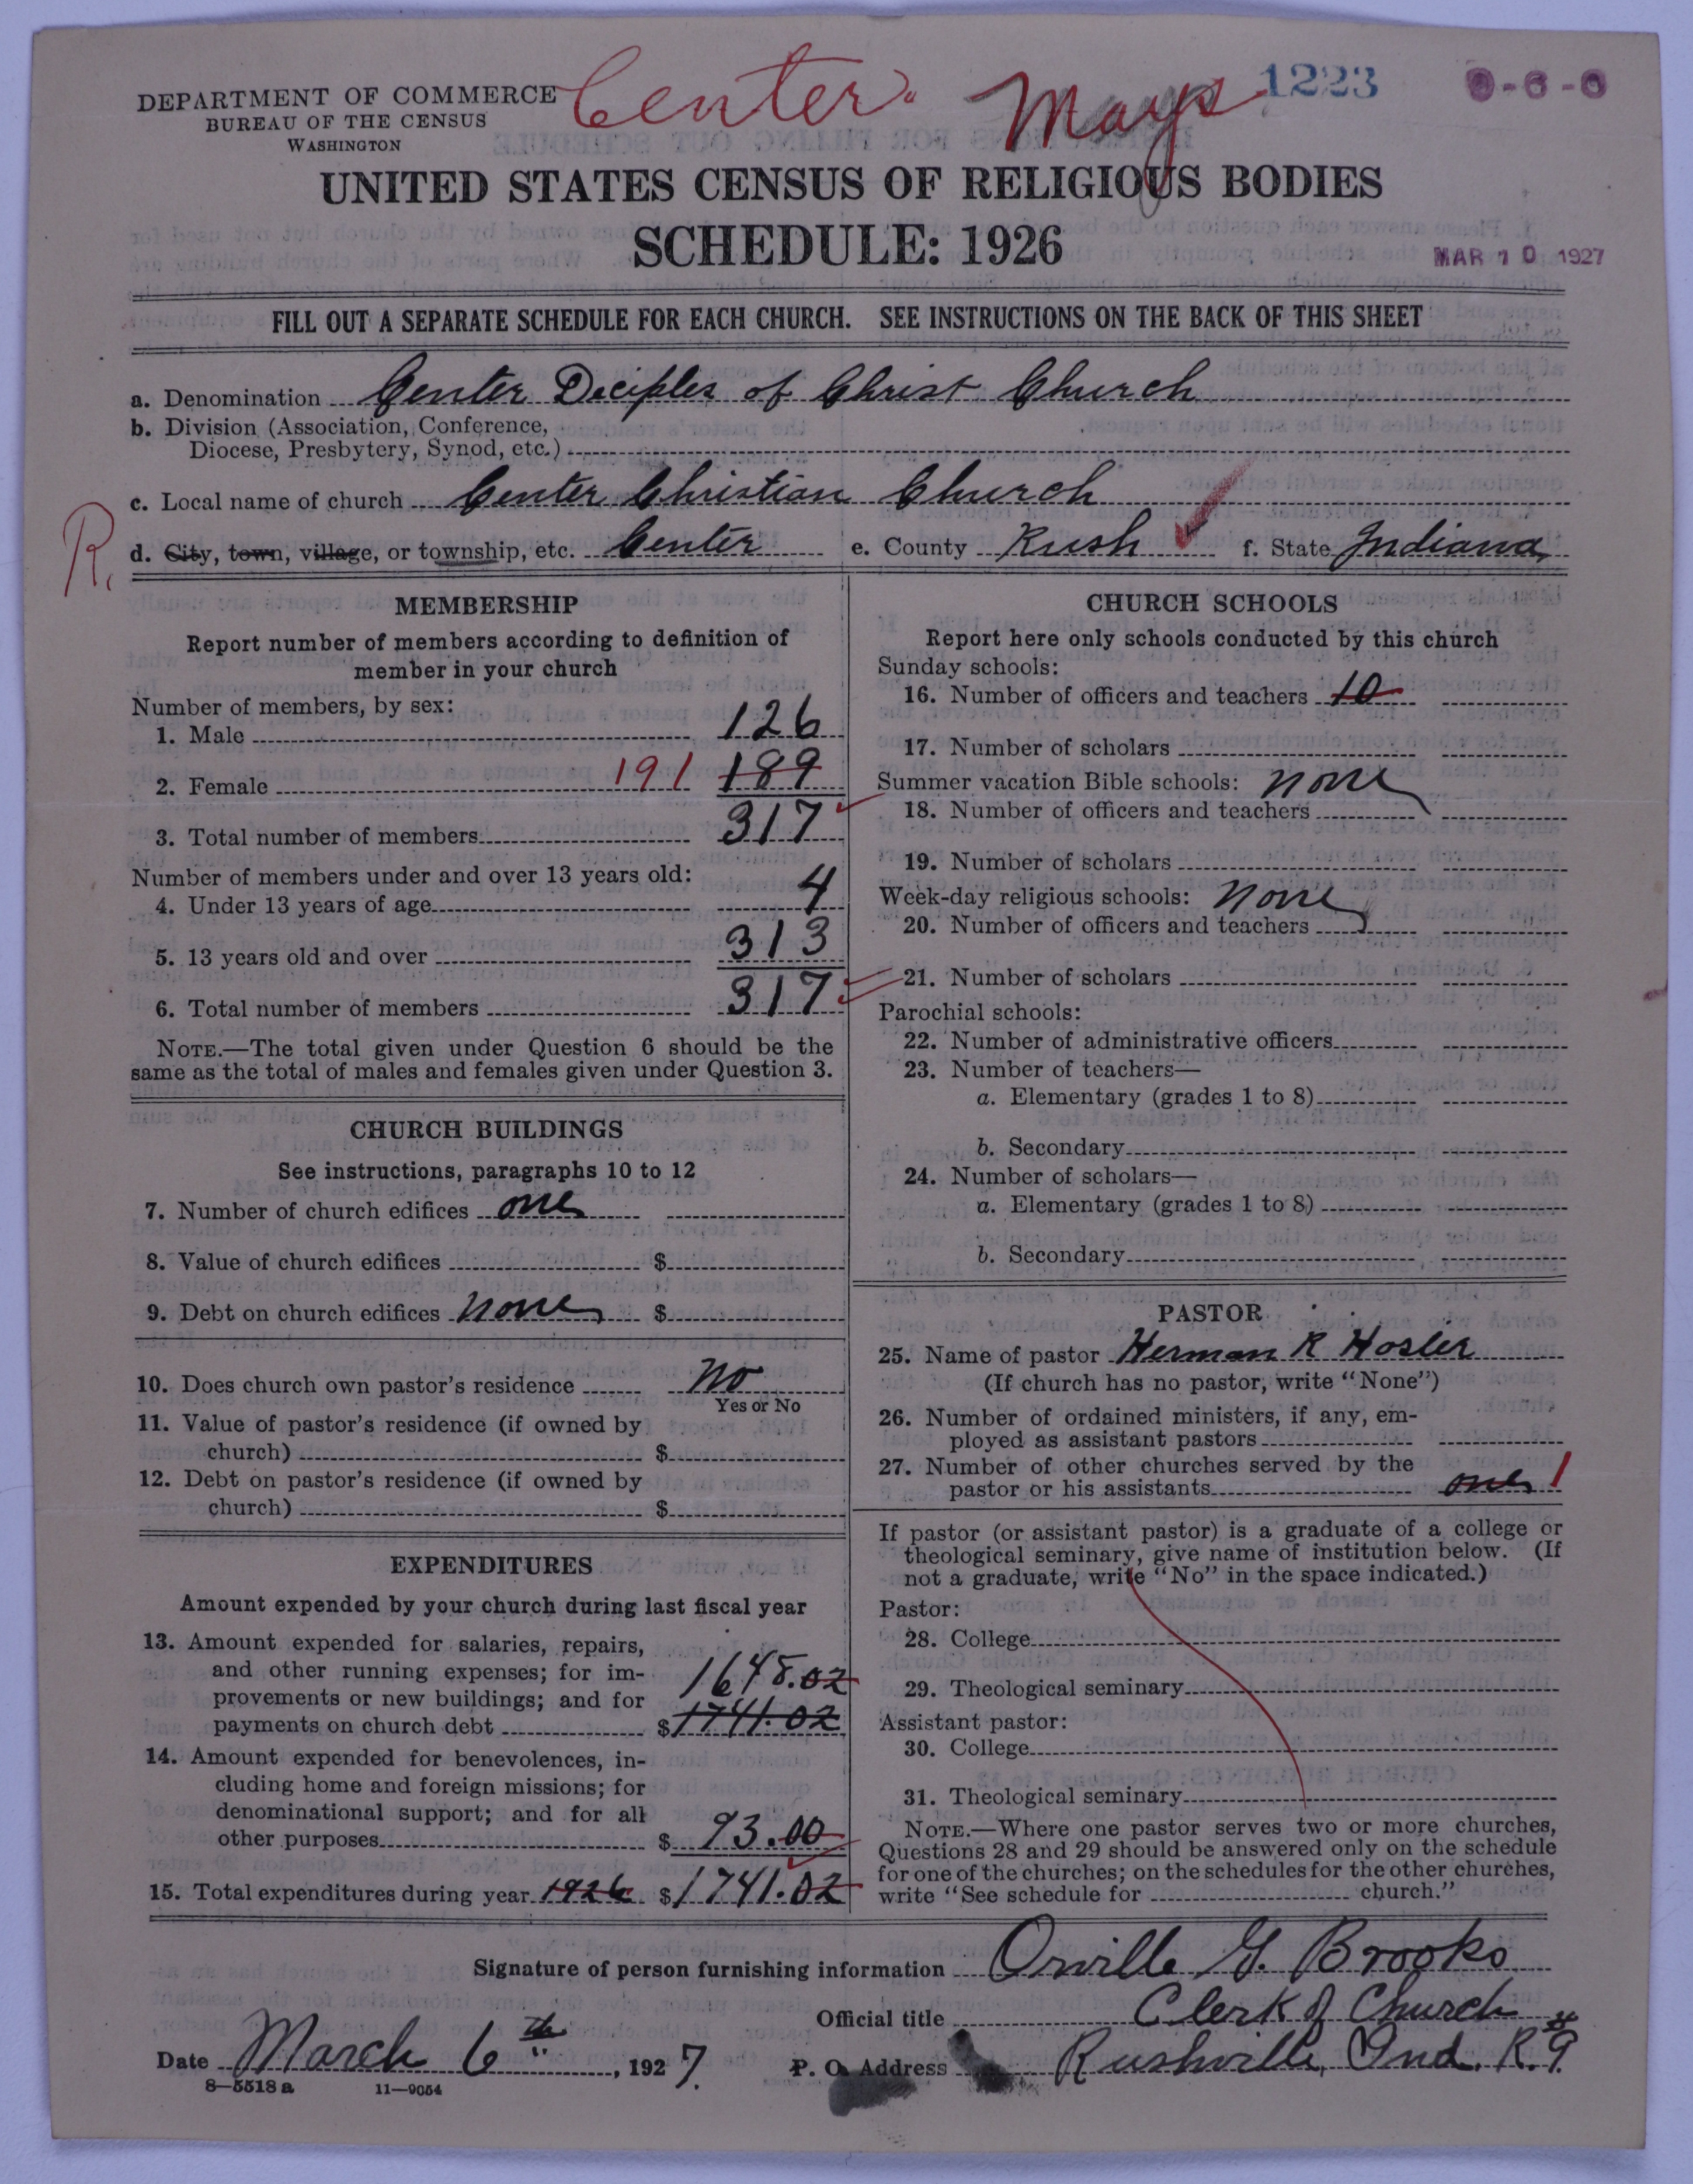 Center. Mays 1223 0-6-0
DEPARTMENT OF COMMERCE
BUREAU OF THE CENSUS
WASHINGTON
UNITED STATES CENSUS OF RELIGIOUS BODIES
SCHEDULE: 1926
MAR 10 1927
FILL OUT A SEPARATE SCHEDULE FOR EACH CHURCH. SEE INSTRUCTIONS ON THE BACK OF THIS SHEET
a. Denomination Center Deciples of Christ Church
b. Division (Association, Conference,
Diocese, Presbytery, Synod, etc.)
c. Local name of church Center Christian Church
R. d. City, town, village, or township, etc. Center e. County Rush f. State Indiana
MEMBERSHIP
Report number of members according to definition of
member in your church
Number of members, by sex:
1. Male 126
2. Female 191 189
3. Total number of members 317
Number of members under and over 13 years old:
4. Under 13 years of age 4
5. 13 years old and over 313
6. Total number of members 317
NOTE.—The total given under Question 6 should be the
same as the total of males and females given under Question 3.
CHURCH BUILDINGS
See instructions, paragraphs 10 to 12
7. Number of church edifices one
8. Value of church edifices $
9. Debt on church edifices none $
10. Does church own pastor's residence No
Yes or No
11. Value of pastor's residence (if owned by
church) $
12. Debt on pastor's residence (if owned by
church) $
EXPENDITURES
Amount expended by your church during last fiscal year
13. Amount expended for salaries, repairs,
and other running expenses; for im-
provements or new buildings; and for
payments on church debt 1648.02
$1741.02
14. Amount expended for benevolences, in-
cluding home and foreign missions; for
denominational support; and for all
other purposes $ 93.00
15. Total expenditures during year 1926 $1741.02
CHURCH SCHOOLS
Report here only schools conducted by this church
Sunday schools:
16. Number of officers and teachers 10
17. Number of scholars
Summer vacation Bible schools: none
18. Number of officers and teachers
19. Number of scholars
Week-day religious schools: none
20. Number of officers and teachers
21. Number of scholars
Parochial schools:
22. Number of administrative officers
23. Number of teachers—
a. Elementary (grades 1 to 8)
b. Secondary
24. Number of scholars—
a. Elementary (grades 1 to 8)
b. Secondary
PASTOR
25. Name of pastor Herman R Hosler
(If church has no pastor, write "None")
26. Number of ordained ministers, if any, em-
ployed as assistant pastors
27. Number of other churches served by the
pastor or his assistants one 1
If pastor (or assistant pastor) is a graduate of a college or
theological seminary, give name of institution below. (If
not a graduate, write "No" in the space indicated.)
Pastor:
28. College
29. Theological seminary
Assistant pastor:
30. College
31. Theological seminary
NOTE.—Where one pastor serves two or more churches,
Questions 28 and 29 should be answered only on the schedule
for one of the churches; on the schedules for the other churches,
write "See schedule for church."
Signature of person furnishing information Orville G. Brooks
Official title Clerk of Church
Date March 6th, 1927. P. O. Address Rushville, Ind. R.#9
8—5518 a 11—9054